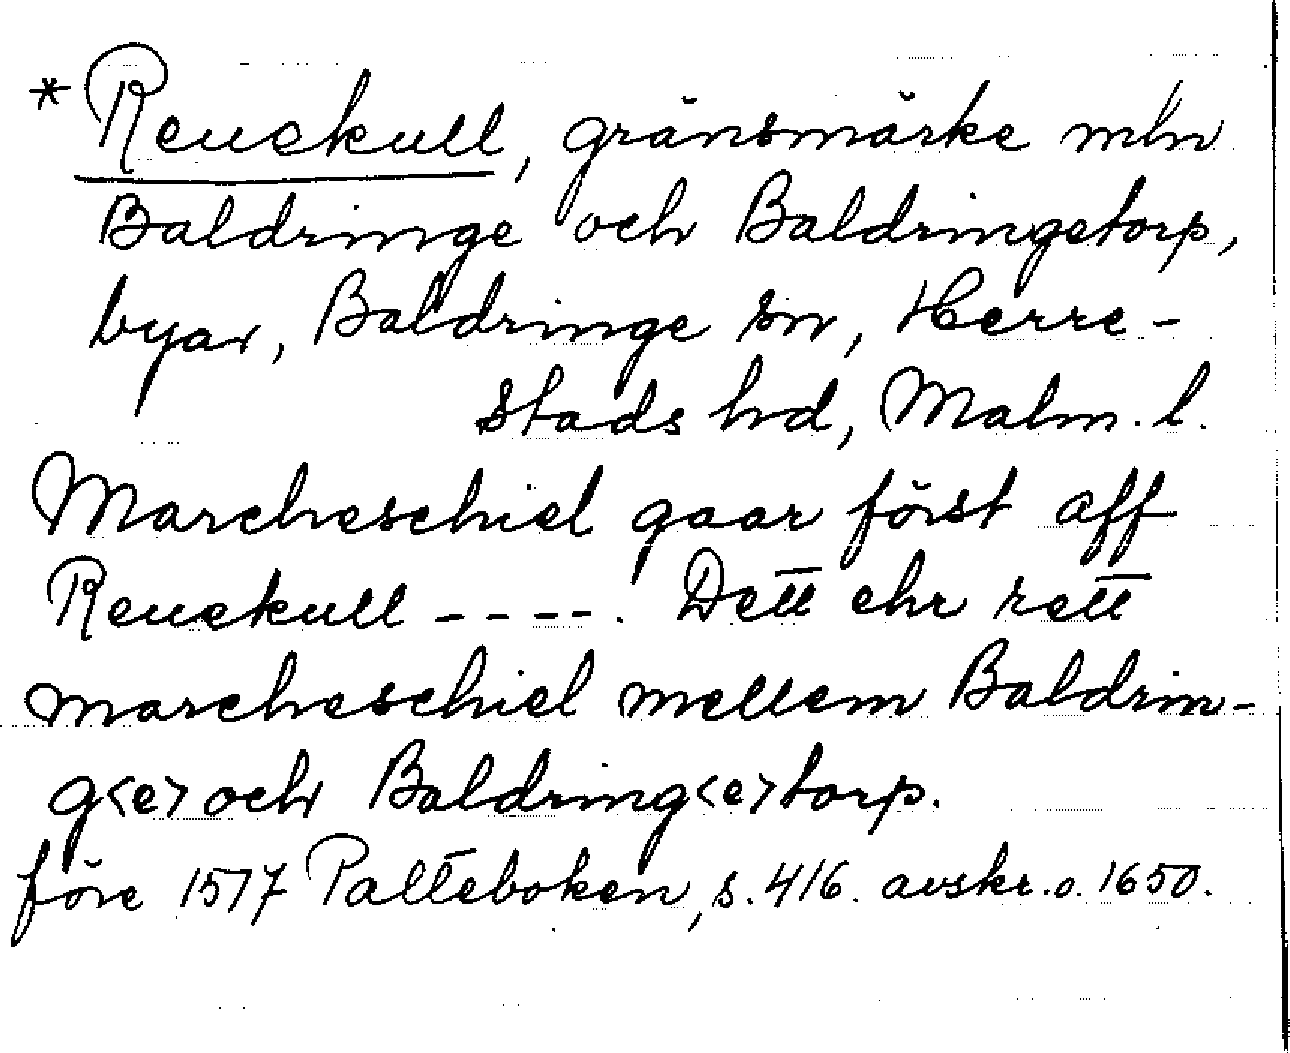 * Reuekull, gränsmärke mln
Baldringe och Baldringetorp,
byar, Baldringe sn, Herre-
stads hd, Malm. l.
Marcheschiel gaar först aff
Reuekull ----. Dett ehr rett
marcheschiel mellem Baldrin-
g<e> och Baldring<e>torp.
före 1577 Palteboken, s. 416. avskr. o. 1650.